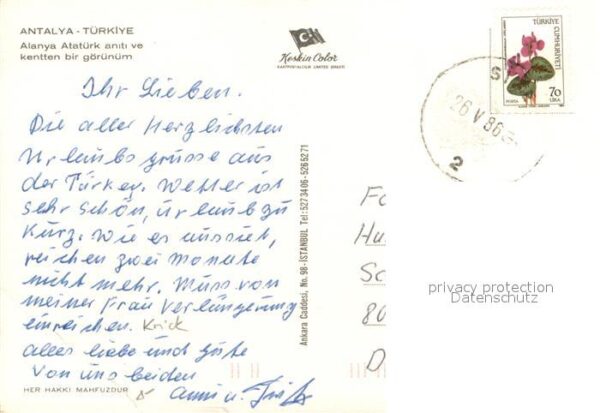 ANTALYA - TÜRKİYE
Alanya Atatürk anıtı ve
kentten bir görünüm
Keskin Color
KARTPOSTALCILIK LIMITED ŞİRKETİ
TÜRKİYE
CUMHURİYETİ
70
LİRA
S
26 V 86
2
Ihr Lieben.
Die aller Herzlichsten
Urlaubs grüsse aus
der Türkey. Wetter ist
sehr schön, urlaub zu
Kurz. Wie es aussiet,
reichen zwei Monate
nicht mehr. Muss von
meiner Frau Verlängerung
einreichen. Krick
alles liebe und gute
Von uns beiden
Anni u.
Ankara Caddesi, No. 98 - İSTANBUL Tel: 5273406-5265271
Fa
Hu
Sc
80
D
privacy protection
Datenschutz
HER HAKKI MAHFUZDUR